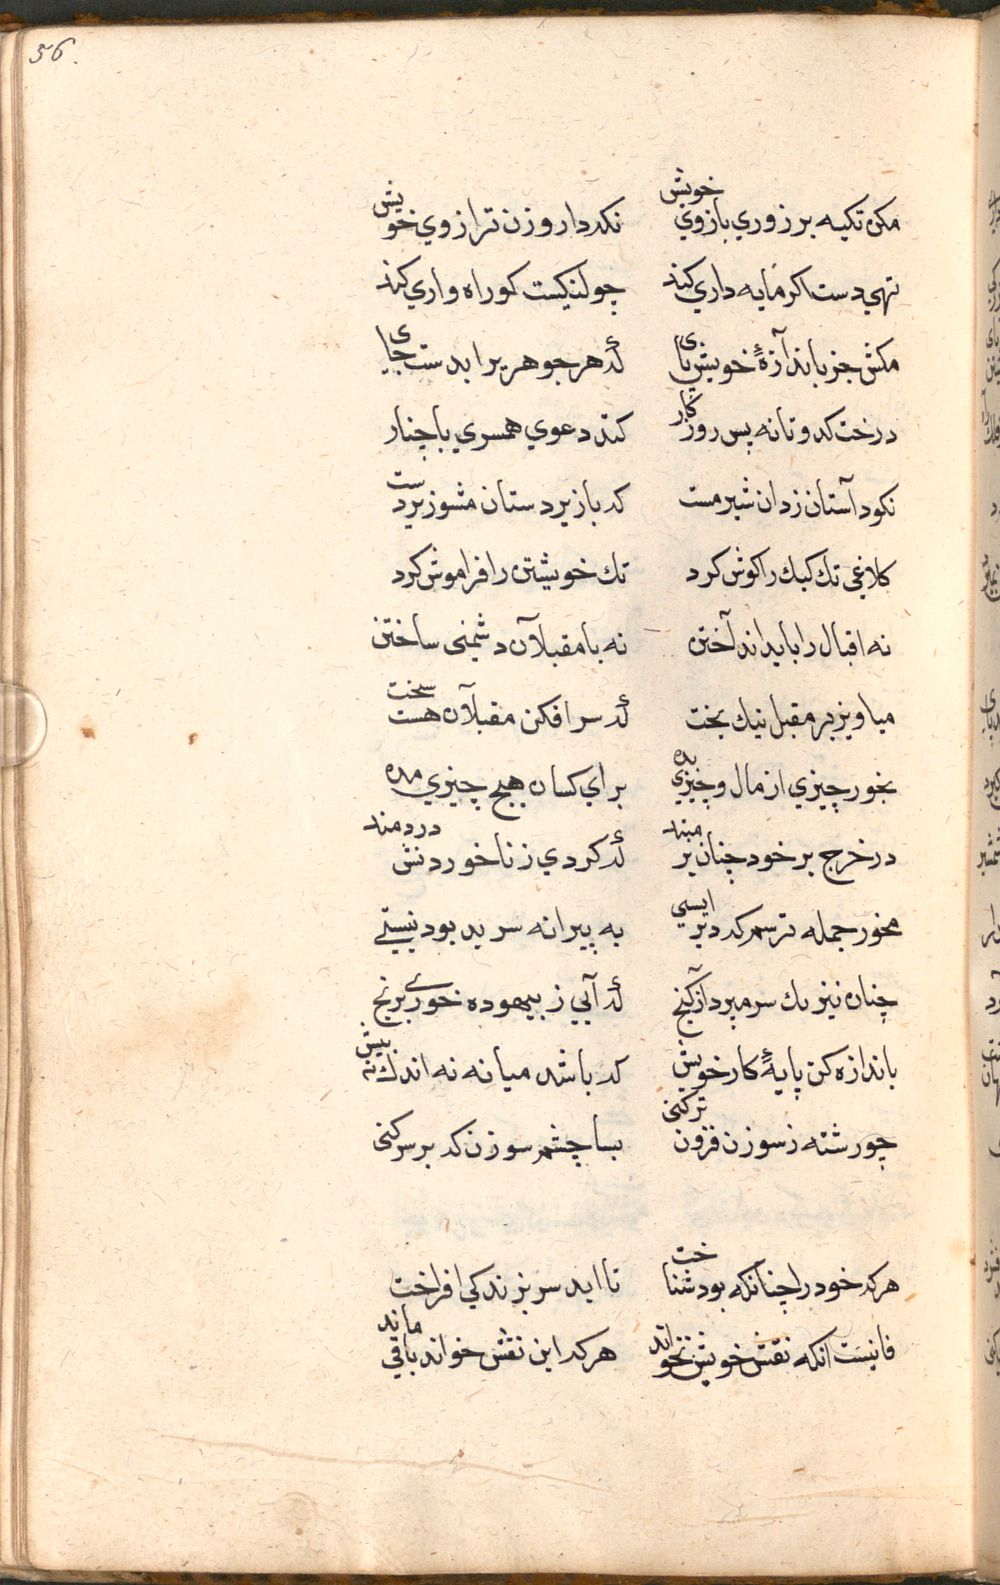 56.
مكن تكيه بر زوري بازوي خويش نكه دار وزن ترازوي خويش
تهي دست اكر مايه داري كند چو لنكيست كو راه واري كند
مكش جز باندازهٔ خويش پاي كه هر جوهريرا بدست جاي
درخت كدو تا نه پس روزكار كند دعوي همسري با چنار
نكو داستان زد ان شير مست كه با زير دستان مشو زير دست
كلاغي تك كبك را كوش كرد تك خويشتن را فراموش كرد
نه اقبال را بايد انداختن نه با مقبلان دشمني ساختن
مياويز بر مقبل نيك بخت كه سر افكن مقبلان هست سخت
بخور چيزي از مال و چيزي بده براي كسان هيچ چيزي مده
در خرج بر خود چنان بر مبند كه كردي ز ناخوردنش دردمند
مخور جمله ترسم كه دير ايستي به پيرانه سر بد بود نيستي
چنان نيز يك سر مپرداز كنج كه آيي ز بيهوده خوري برنج
باندازه كن پايهٔ كار خويش كه باشد ميانه نه اندك نه بيش
چو رشته ز سوزن فزون تر كني بسا چشم سوزن كه بر سر كني
هركه خود را چنانكه بود شناخت تا ابد سر بزندكي افراخت
فانيست انكه نقش خويش نخواند هركه اين نقش خواند باقي ماند